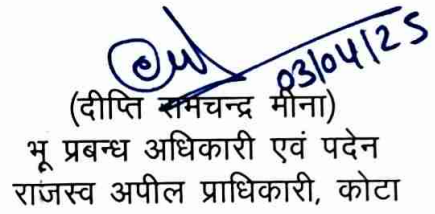 03/04/25
(दीप्ति रामचन्द्र मीना)
भू प्रबन्ध अधिकारी एवं पदेन
राजस्व अपील प्राधिकारी, कोटा